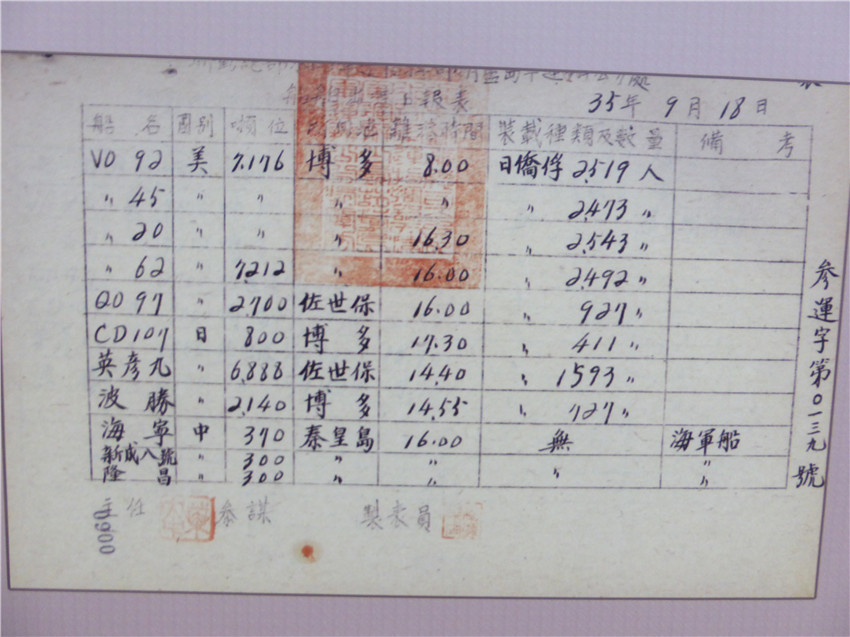 日報表
35年9月18日
船名 國別 噸位 離港時間 裝載種類及數量 備考
VO 92 美 7.176 博多 8.00 日僑俘 2,519人
〃 45 〃 〃 〃 〃 〃 2,473 〃
〃 20 〃 〃 〃 16.30 〃 2,543 〃
〃 62 〃 7,212 〃 16.00 〃 2,492 〃
QO 97 〃 2,700 佐世保 16.00 〃 927 〃
CD 107 日 800 博多 17.30 〃 411 〃
英彦九 〃 6,888 佐世保 14.40 〃 1593 〃
波勝 〃 2,140 博多 14.55 〃 727 〃
海寧 中 370 秦皇島 16.00 無 海軍船
新成八號 〃 300 〃 〃 〃 〃
隆昌 〃 300 〃 〃 〃 〃
主任 參謀 製表員
参運字第0一三九號
0900